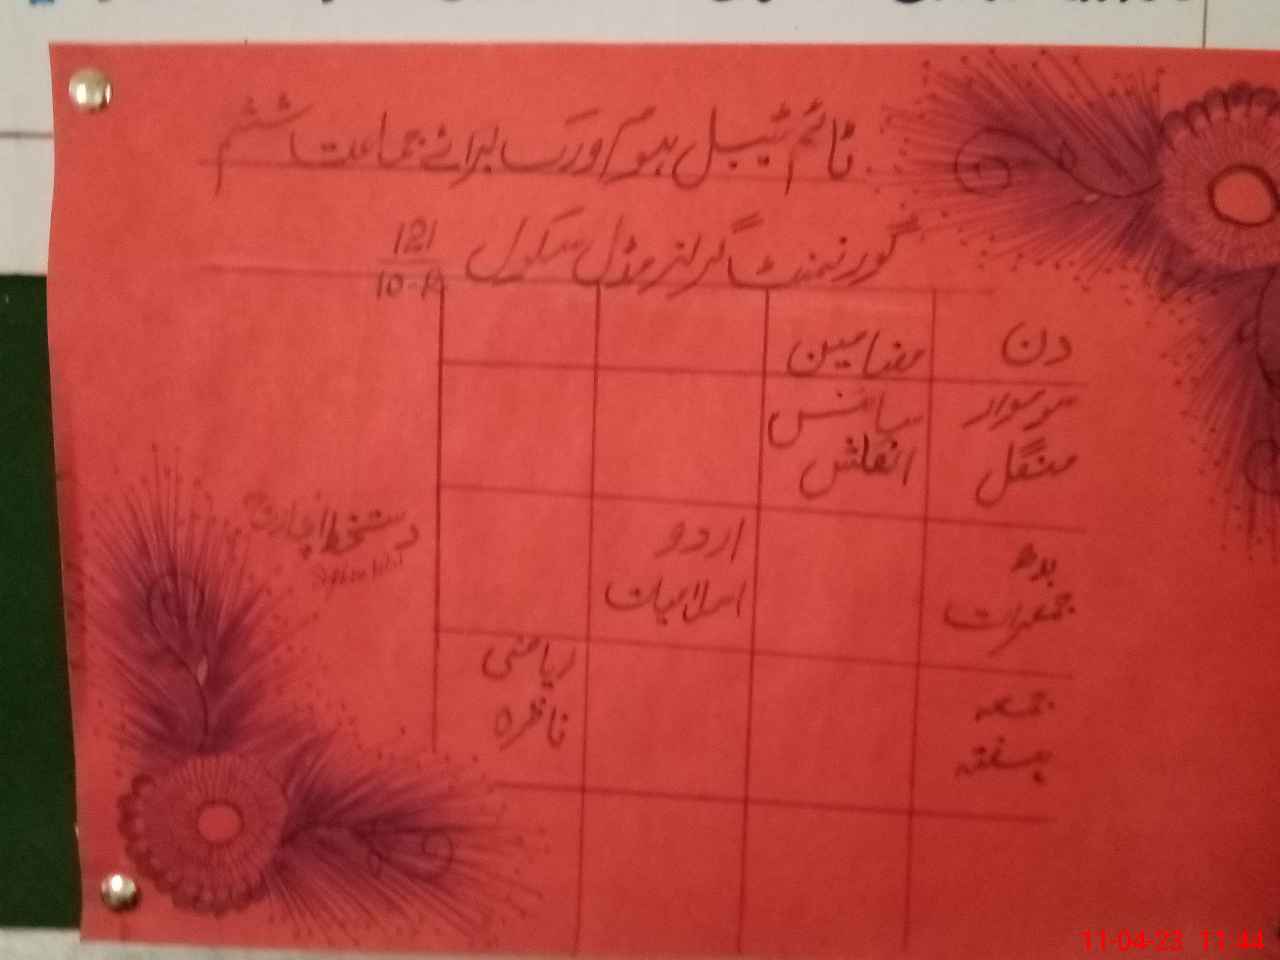 ٹائم ٹیبل ہوم ورک برائے جماعت ششم
گورنمنٹ گرلز مڈل سکول 121/10-R
دن مضامین
سوموار سائنس
منگل انگلش
بدھ اردو
جمعرات اسلامیات
جمعہ ریاضی
ہفتہ ناظرہ
دستخط انچارج
11-04-23 11:44